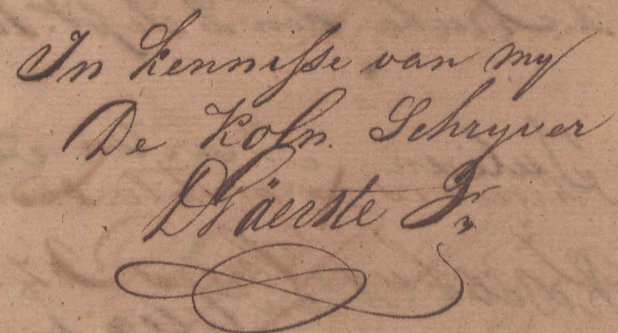 In kennisse van my
De Koln. Schryver
Jr.